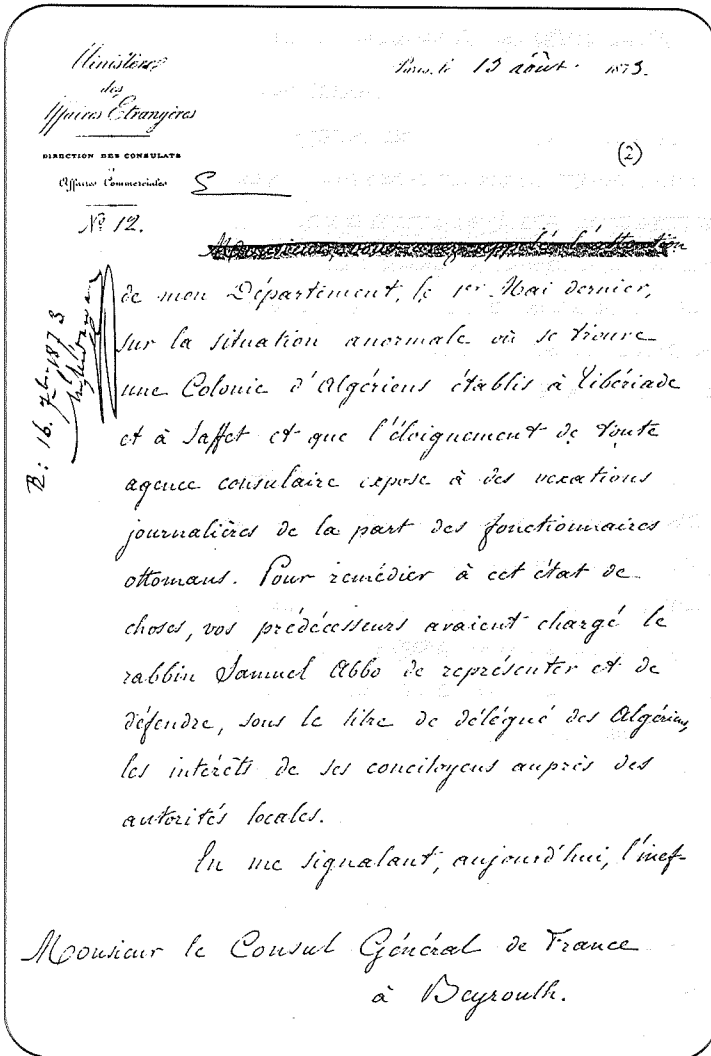 Ministère
des
Affaires Etrangères
DIRECTION DES CONSULATS
et
Affaires Commerciales
Nº 12.
Paris, le 13 août 1873.
(2)
R: 16. 7bre 1873
Monsieur, vous avez appelé l'attention
de mon Département, le 1er Mai dernier,
sur la situation anormale où se trouve
une Colonie d'Algériens établis à Tibériade
et à Saffet et que l'éloignement de toute
agence consulaire expose à des vexations
journalières de la part des fonctionnaires
ottomans. Pour remédier à cet état de
choses, vos prédécesseurs avaient chargé le
rabbin Samuel Abbo de représenter et de
défendre, sous le titre de délégué des Algériens,
les intérêts de ses concitoyens auprès des
autorités locales.
En me signalant, aujourd'hui, l'inef-
Monsieur le Consul Général de France
à Beyrouth.